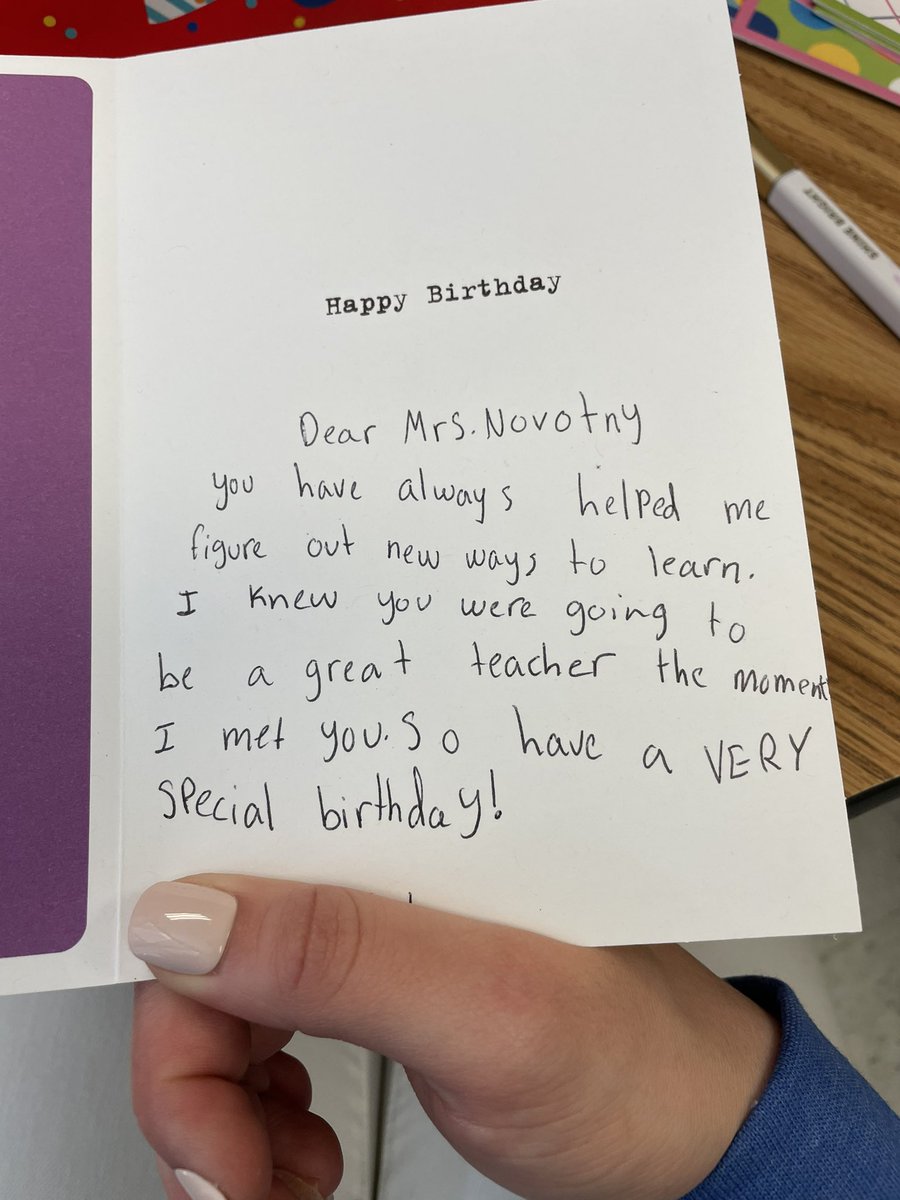 Happy Birthday
Dear Mrs. Novotny
you have always helped me
figure out new ways to learn.
I knew you were going to
be a great teacher the moment
I met you. So have a VERY
special birthday!
SHINE BRIGHT